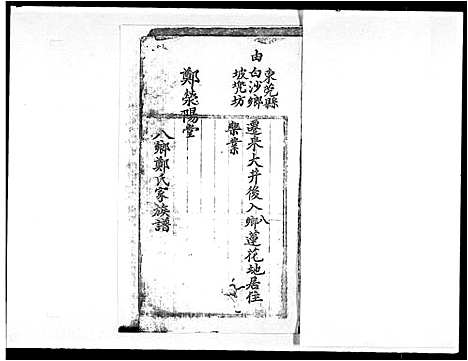 由
東莞縣
白沙鄉
坡𠒇坊
遷來大井後入八鄉蓮花地居住
樂業
鄭滎陽堂
八鄉鄭氏家族譜